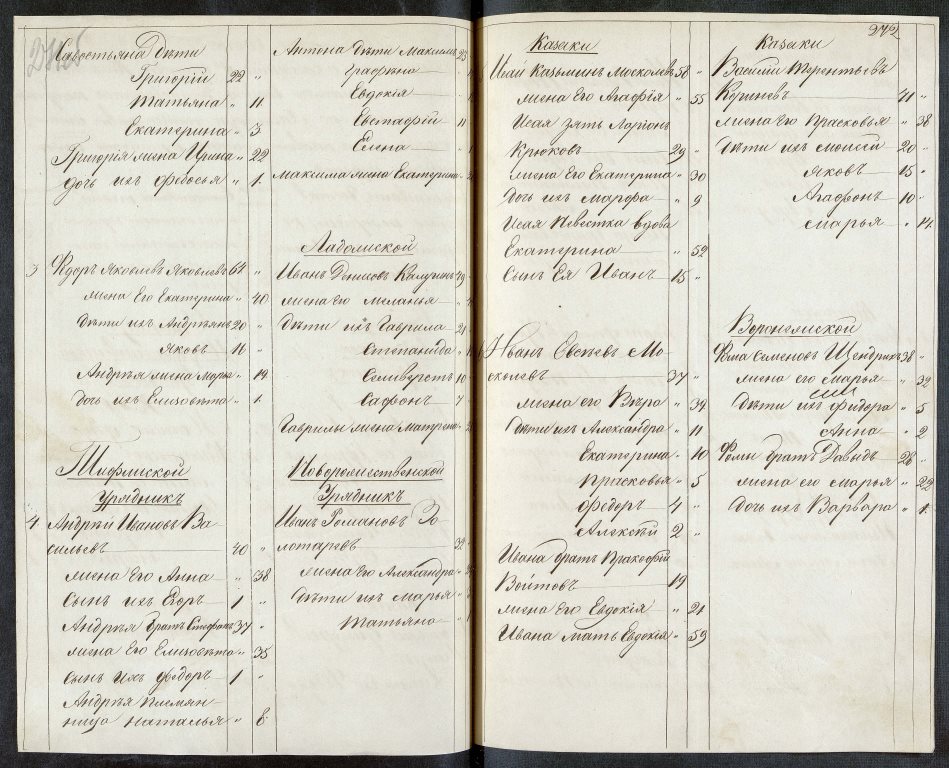 Григорій 22 "
Татьяна " 11
Екатерина " 3
Григорія жена Ирина " 22
дочь ихъ Ѳедосья " 1
3 Ѳедоръ Яковлевъ Яковлевъ 64 "
жена Его Екатерина " 40
дѣти ихъ Андреянъ 20 "
Яковъ 16 "
Андрея жена Марья " 19
дочь ихъ Елизовета " 1
Тифлиской
Урядникъ
4 Андрей Ивановъ Ва
сильевъ 40 "
жена Его Анна " 38
Сынъ ихъ Егоръ 1 "
Андрея братъ Стефанъ 37 "
жена Его Елизовета " 35
сынъ ихъ Ѳедоръ 1 "
Андрея племян-
ница Наталья " 8
Антона дѣти Максимъ 23
Графѣна
Евдокія
Евстафій 11
Елена
Максима жена Екатерина
Ладожской
Иванъ Денисовъ
жена его Меланья
дѣти ихъ Гаврила 21
Степанида
Селиверстъ 10
Сафонъ 7
Гаврилы жена Матрена
Новорожественской
Урядникъ
Иванъ Романовъ Зо
лотаревъ 32
жена Его Александра
дѣти ихъ Марья
Татьяна
Казаки
Исай Казьминъ 58 "
жена Его Агафія " 55
Исая зять Ларіонъ
Крюковъ 29 "
жена Его Екатерина " 30
дочь ихъ Марфа " 9
Исая Невестка вдова
Екатерина " 52
Сынъ Ея Иванъ 15 "
Иванъ Евсѣевъ Мо
сколевъ 37 "
жена его Вѣра " 34
дѣти ихъ Александра " 11
Екатерина " 10
Прасковья " 5
Ѳедоръ 4 "
Алексѣй 2 "
Ивана братъ Пракофій
Войтовъ 19
жена Его Евдокія " 21
Ивана мать Евдокія " 59
272
Казаки
Василій Терентьевъ
41 "
жена его Прасковья " 38
дѣти ихъ Моисей 20 "
Яковъ 15 "
Агафонъ 10 "
Марья " 14
Воронежской
Ѳома Семеновъ 38 "
жена его Марья " 39
дѣти ихъ Ѳедора " 5
Анна " 2
Ѳомы братъ Давыдъ 26 "
жена его Марья " 22
дочь ихъ Варвара " 1